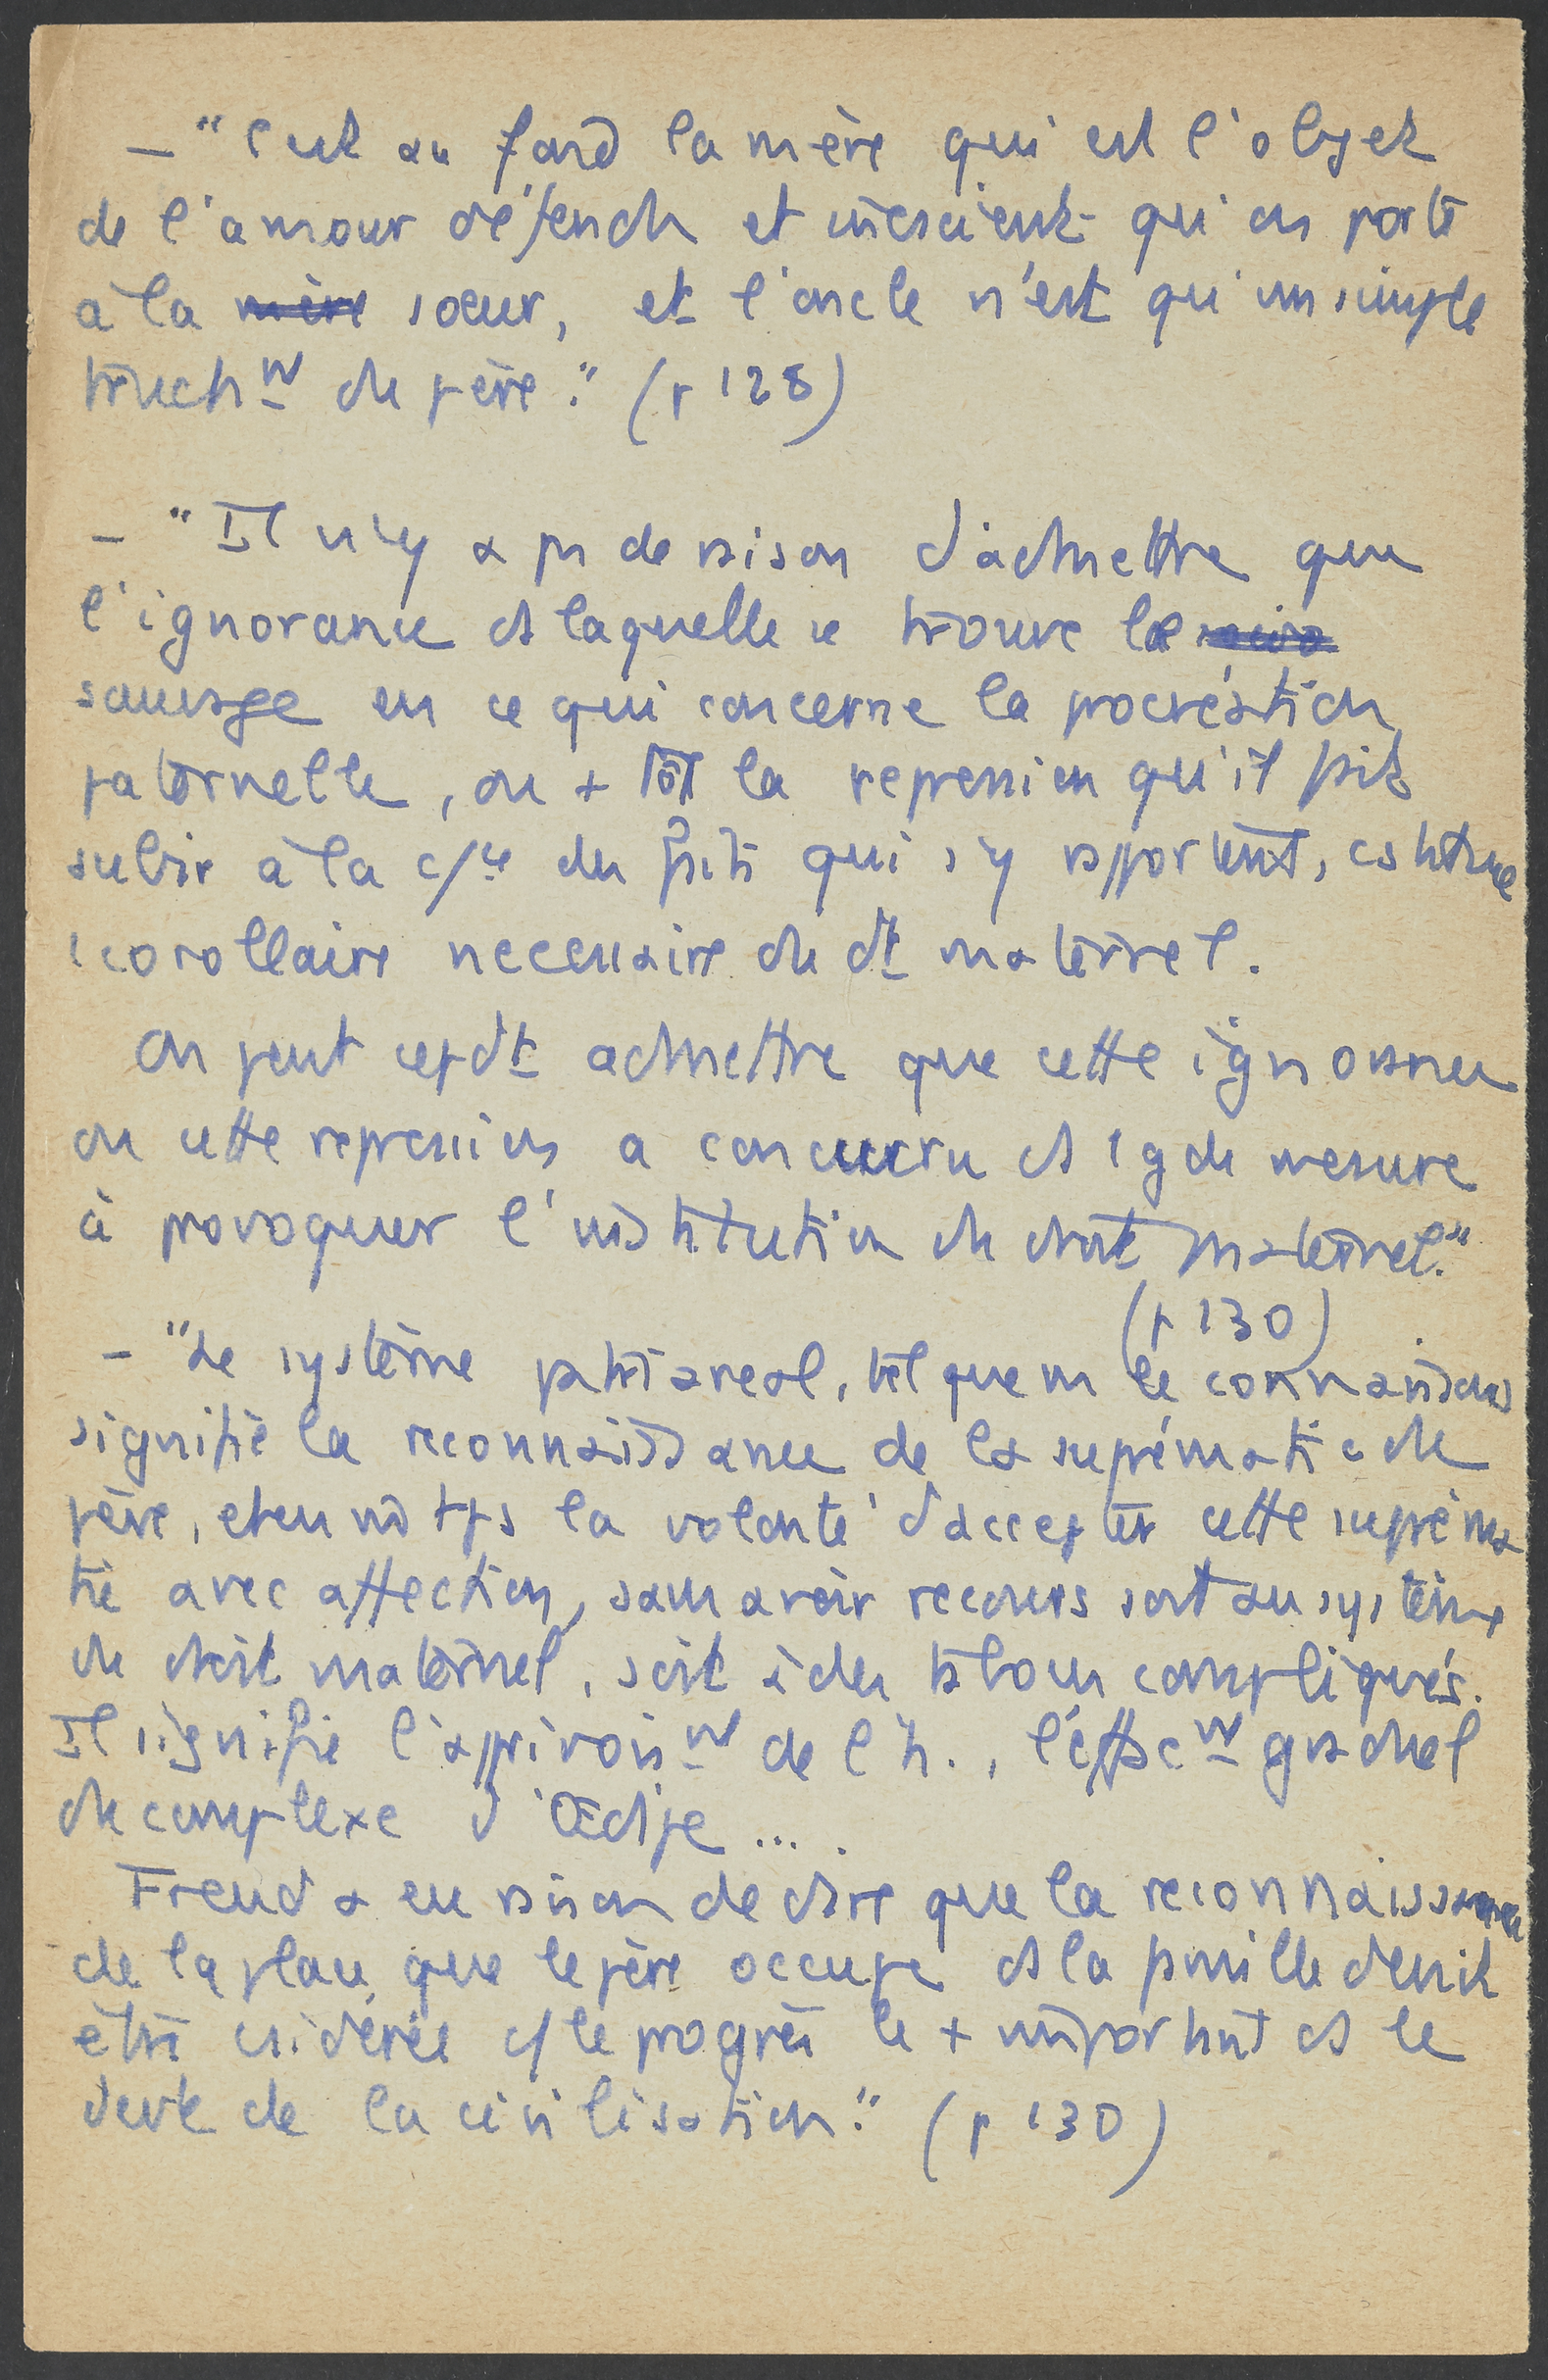 – "C'est au fond la mère qui est l'objet
de l'amour défendu et inconscient qu'on porte
à la mère soeur, et l'oncle n'est qu'un simple
truchmt du père." (p 128)
– "Il n'y a pas de raison d'admettre que
l'ignorance ds laquelle se trouve le
sauvage en ce qui concerne la procréation
paternelle, ou + tôt la repression qu'il fait
subir à la c/ce des faits qui s'y rapportent, constitue
1 corollaire necessaire du dt maternel.
On peut cepdt admettre que cette ignorance
ou cette repression a concouru ds 1 gde mesure
à provoquer l'institution du droit maternel."
(p 130)
– "Le système patriarcal, tel que ns le connaissons
signifie la reconnaissance de la suprématie du
père, et en m tps la volonté d'accepter cette supréma
tie avec affection, sans avoir recours soit au système
du droit maternel, soit à des tabous compliqués.
Il signifie l'apprivoismt de l'h., l'effacmt graduel
du complexe d'Œdipe ....
Freud a eu raison de dire que la reconnaissance
de la place que le père occupe ds la famille devrait
être csidérée c/ le progrès le + important ds le
devt de la civilisation." (p 130)